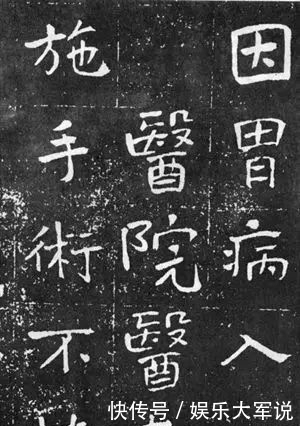 因胃病入
醫院醫
施手術不
快传号 / 娱乐大军说